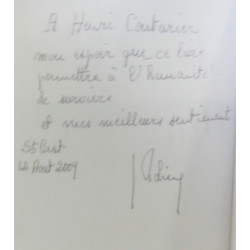 A Henri Couturier
mon espoir que ce livre
permettra à l'humanité
de
& mes meilleurs sentiments
St Just
12 Août 2009